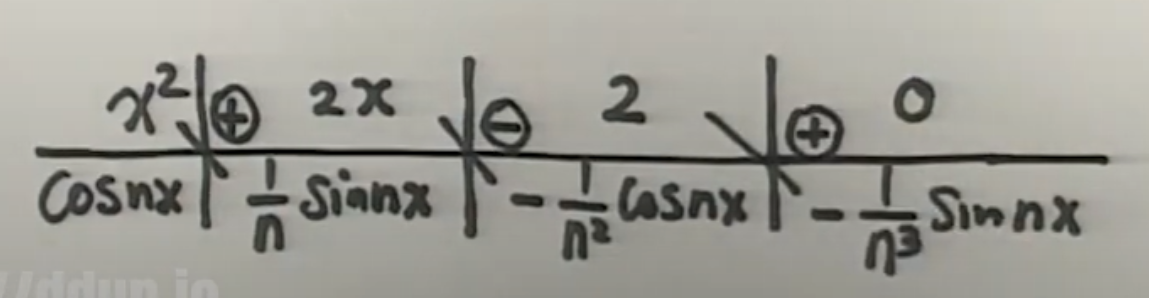 x² ⊕ 2x ⊖ 2 ⊕ 0
Cosnx 1/n Sinnx - 1/n² Cosnx - 1/n³ Sin nx
//ddup.io